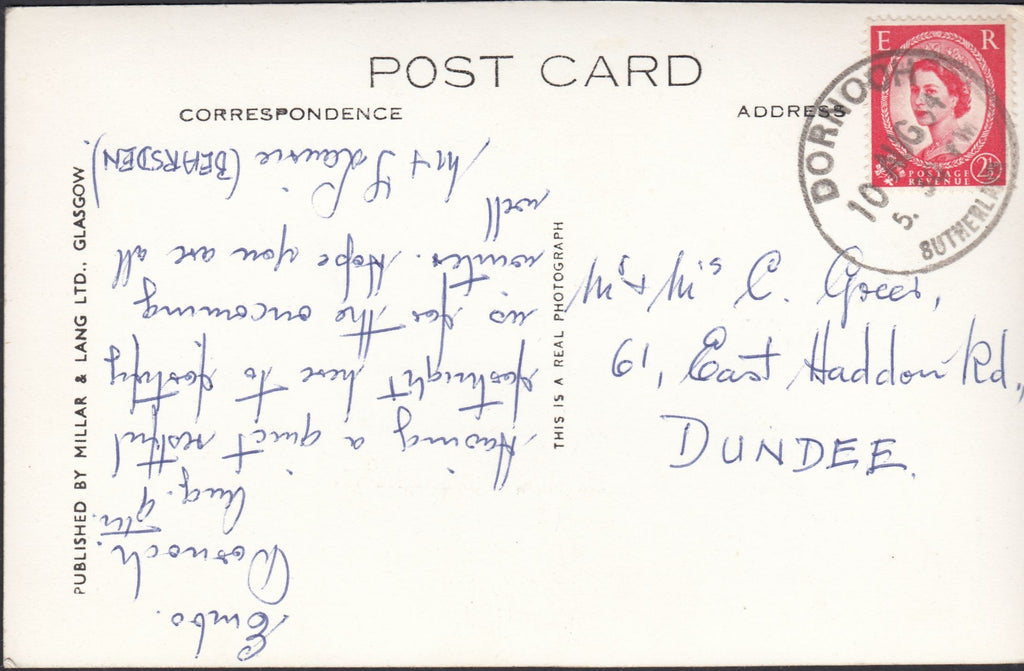 POST CARD
CORRESPONDENCE
ADDRESS
E R
POSTAGE
REVENUE
2½
DORNOCH
10 AUG 54
SUTHERLAND
PUBLISHED BY MILLAR & LANG LTD., GLASGOW
THIS IS A REAL PHOTOGRAPH
Embo.
Dornoch.
Aug. 9th.
Having a quiet restful
fortnight here to fortify
us for the oncoming
winter. Hope you are all
well
Laurie (BEARSDEN).
Mr & Mrs C. Greer,
61, East Haddon Rd.,
DUNDEE.